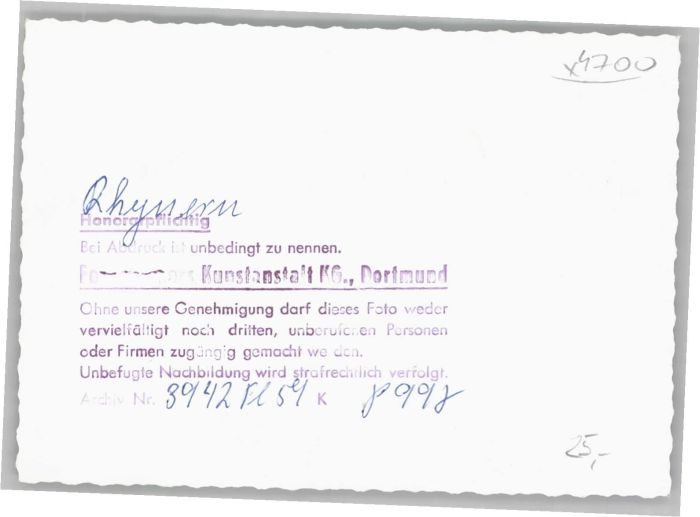 x4700
Rhynern
Honorarpflichtig
Bei Abdruck ist unbedingt zu nennen.
Kunstanstalt KG., Dortmund
Ohne unsere Genehmigung darf dieses Foto weder
vervielfältigt noch dritten, unberufenen Personen
oder Firmen zugängig gemacht werden.
Unbefugte Nachbildung wird strafrechtlich verfolgt.
Archiv Nr. 3942 Fl 59 K
25,-